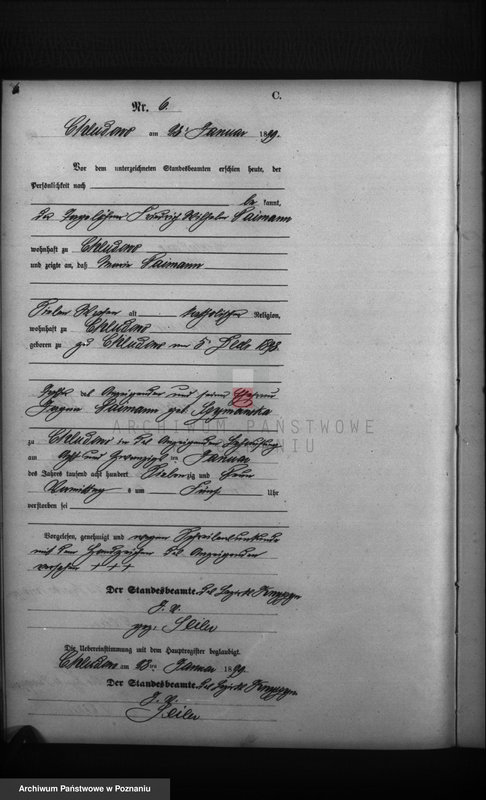 C.
Nr. 6.
Chludowo am 28 Januar 1899.
Vor dem unterzeichneten Standesbeamten erschien heute, der
Persönlichkeit nach
be kannt,
Friedrich Wilhelm Naimann
wohnhaft zu Chludowo
und zeigte an, daß Maria Naimann
Sieben Wochen alt katholischer Religion,
wohnhaft zu Chludowo
geboren zu Chludowo am 5
Tochter des Anzeigenden und seiner Ehefrau
geb. Szymanska
zu Chludowo in des Anzeigenden Behausung
am Acht und zwanzigsten Januar
des Jahres tausend acht hundert neun zig und neun
Vormittags um Fünf Uhr
verstorben sei
Vorgelesen, genehmigt und wegen
mit dem Handzeichen des Anzeigenden
versehen + + +
Der Standesbeamte.
J. V.
gez. Seiler
Die Uebereinstimmung mit dem Hauptregister beglaubigt.
Chludowo am 28ten Januar 1899.
Der Standesbeamte.
J. V.
Seiler
ARCHIWUM PAŃSTWOWE
W POZNANIU
Archiwum Państwowe w Poznaniu